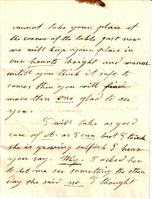 cannot take your place at
the corner of the table just now
we will keep your place in
our hearts bright and warm
until you think it safe to
come, then you will find
more than one glad to see
you.
I will take as good
care of A. as I can but I think
she is growing selfish I hear
you say. Why. I asked her
to let me see something the other
day she said no. I thought